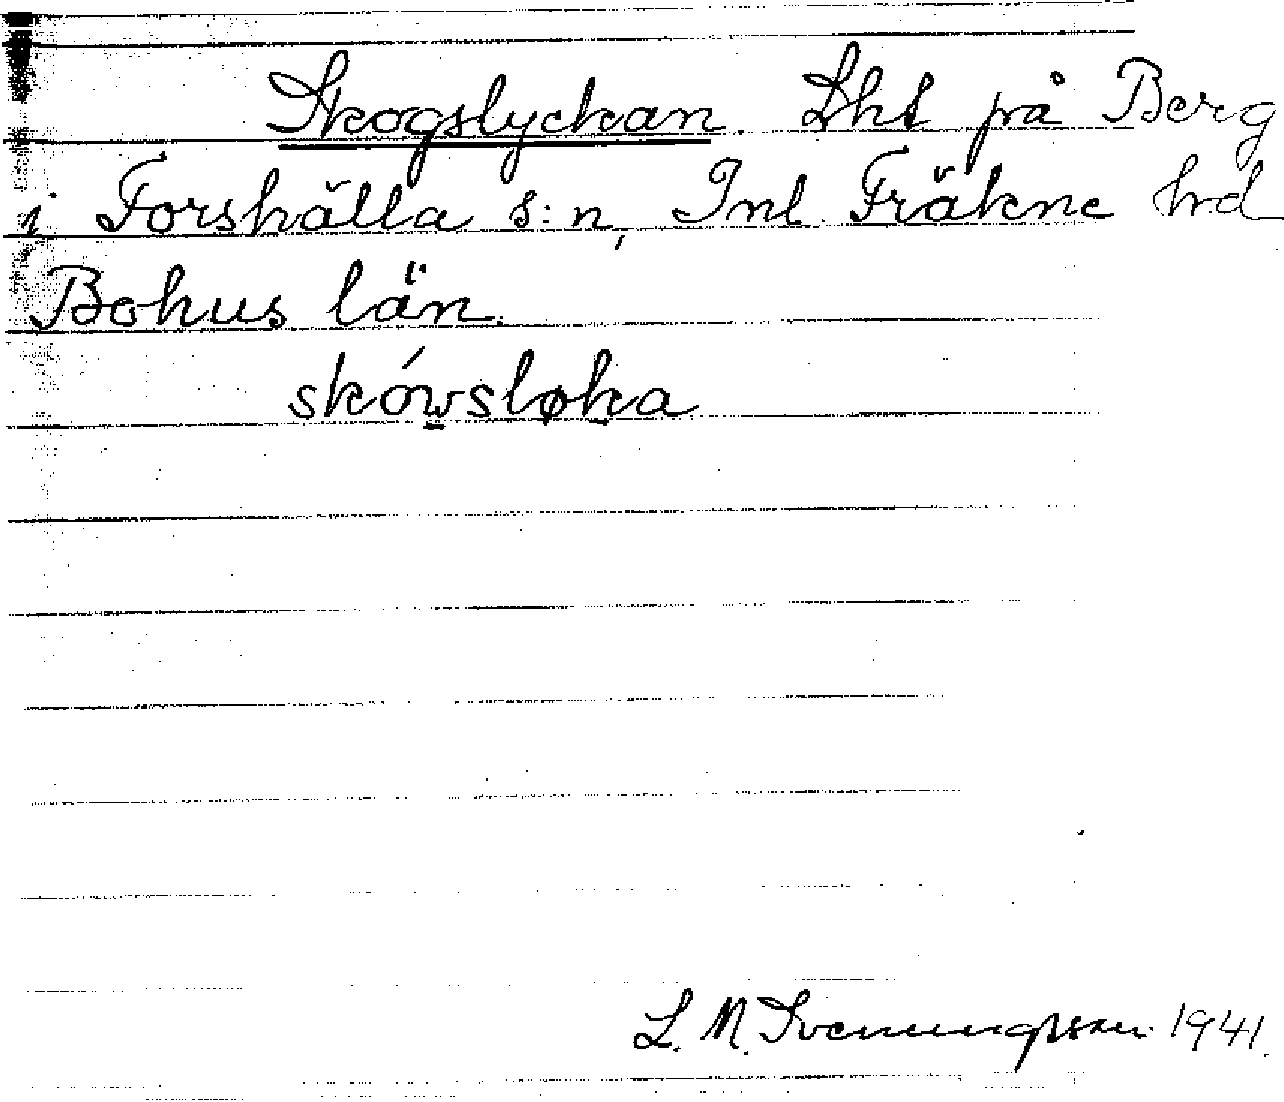 Skogslyckan. Lht på Berg
i Forshälla s:n, Inl. Fräkne hd
Bohus län.
skówsløka
L. M. Svenungsson 1941.